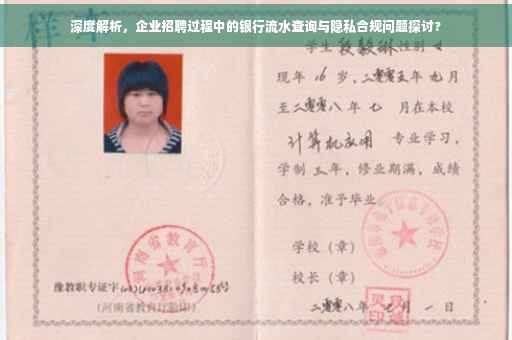 深度解析，企业招聘过程中的银行流水查询与隐私合规问题探讨？
样本
学生 段毅琳 性别 女
现年 16 岁，二零零五年 九月
至二零零八年 七 月在本校
计算机应用 专业学习，
学制 三 年，修业期满，成绩
合格，准予毕业
学校（章）
校长（章）
二零零八年 七 月 一 日
河南省教育厅
豫教职专证字
（河南省教育厅验印）